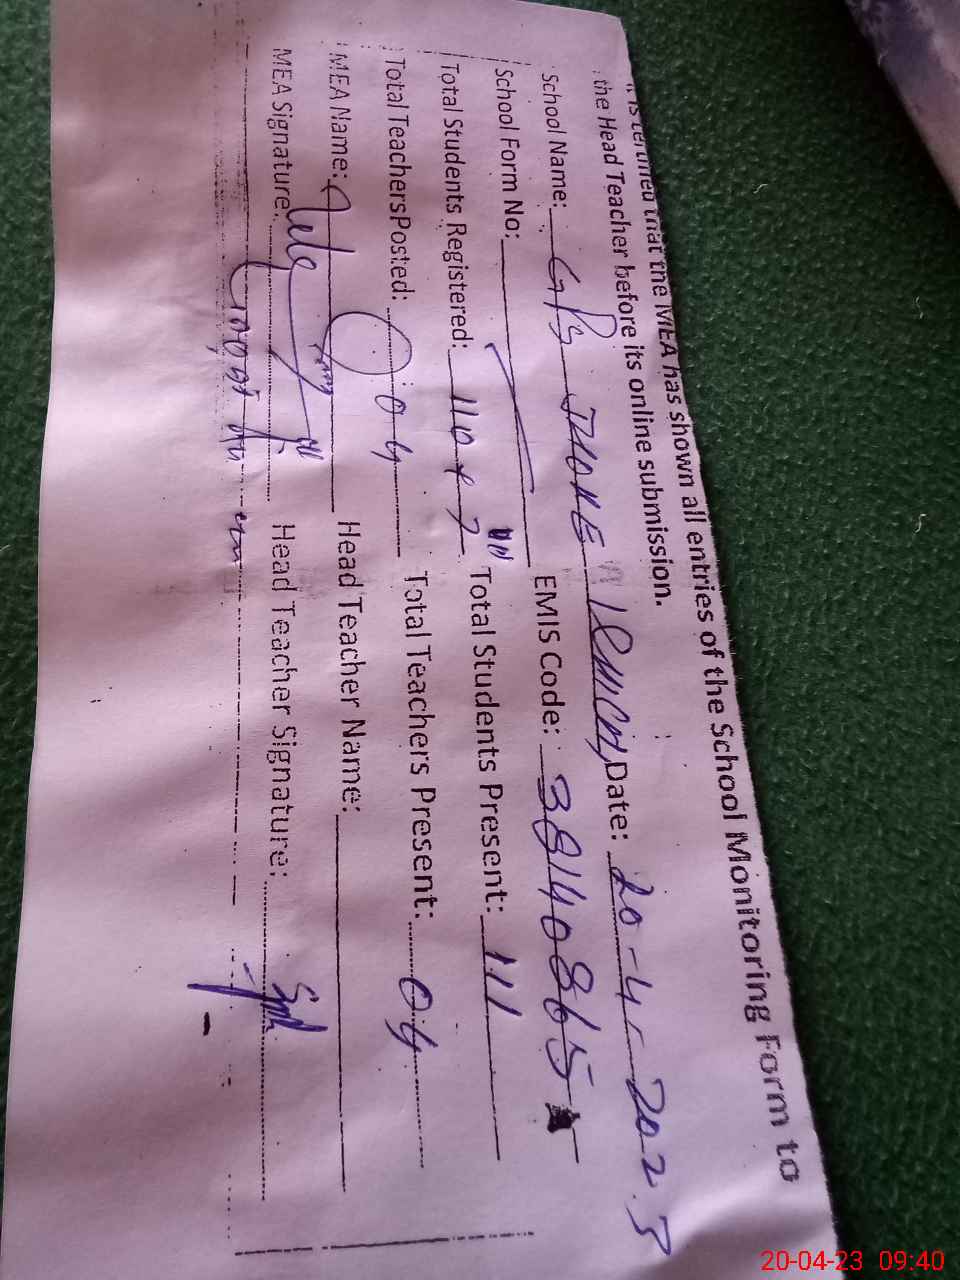 It is certified that the MEA has shown all entries of the School Monitoring Form to
the Head Teacher before its online submission.
School Name: GPS Date: 20-4-2023
School Form No: EMIS Code: 38140865
Total Students Registered: 110+7 Total Students Present: 111
Total TeachersPosted: 04 Total Teachers Present: 04
MEA Name: Head Teacher Name:
MEA Signature: Head Teacher Signature:
20-04-23 09:40